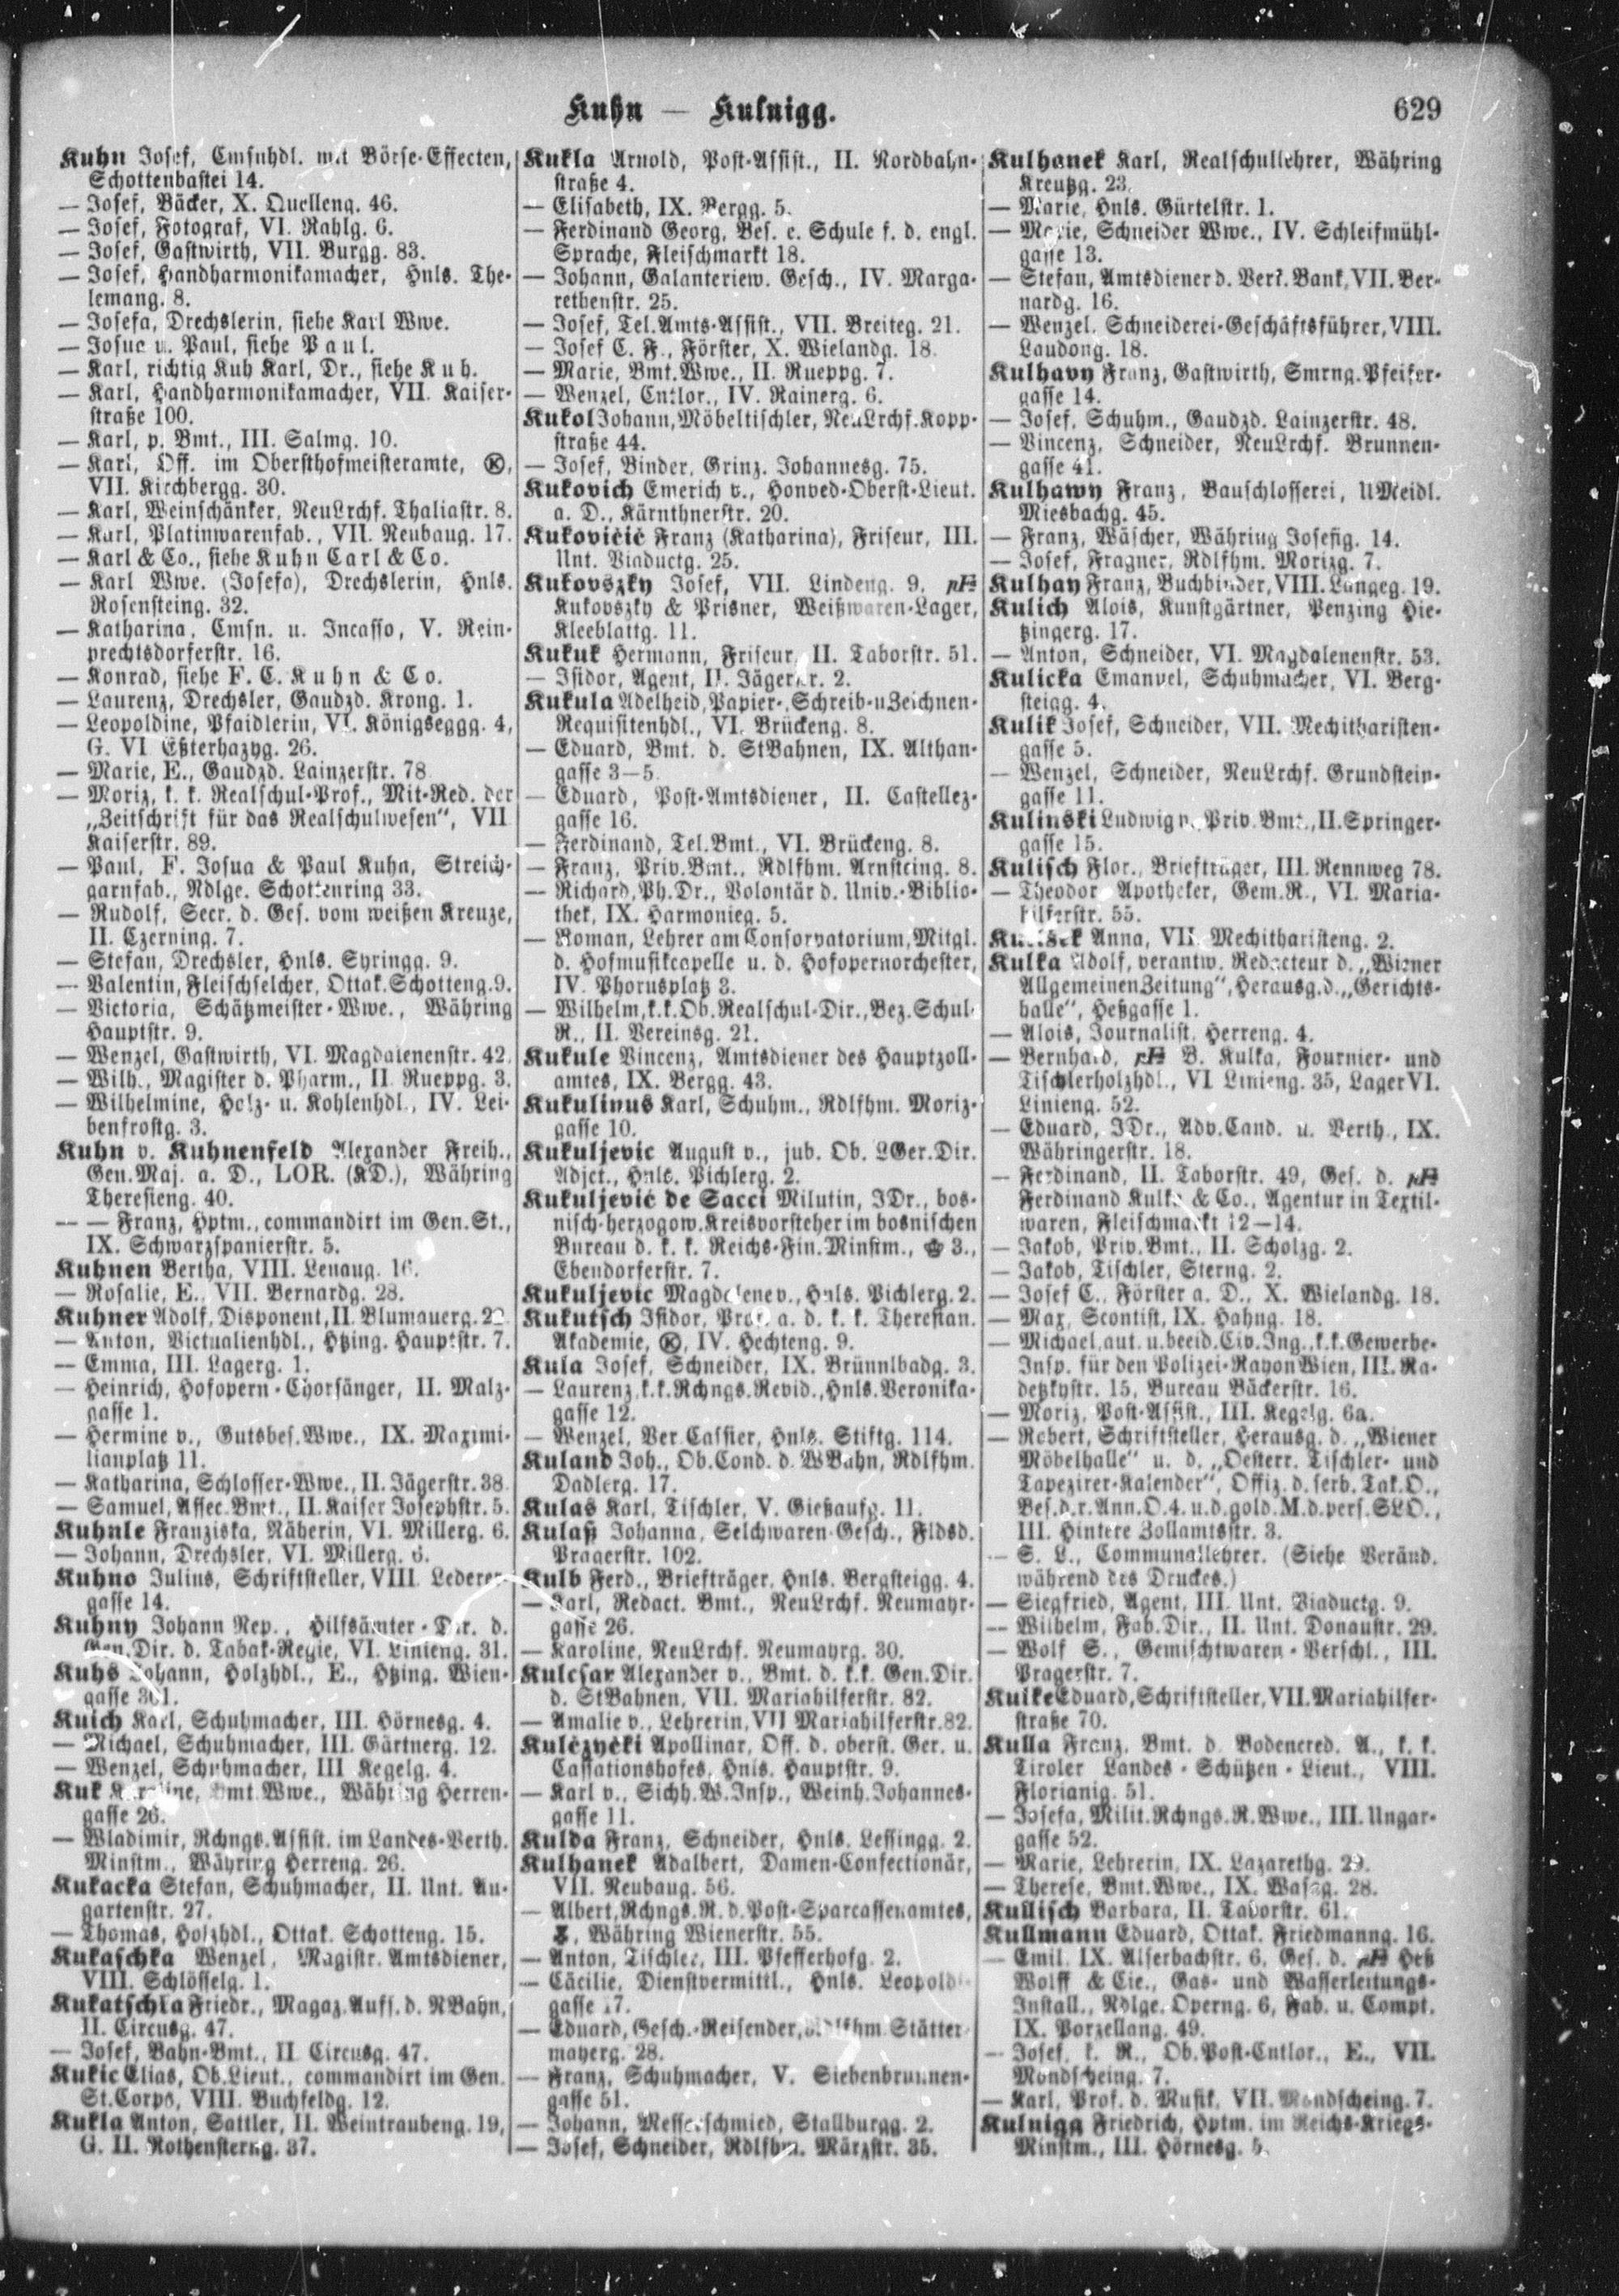 Kuhn — Kulnigg.
629
Kuhn Josef, Cmsnhdl. mit Börse-Effecten,
Schottenbastei 14.
— Josef, Bäcker, X. Quelleng. 46.
— Josef, Fotograf, VI. Rahlg. 6.
— Josef, Gastwirth, VII. Burgg. 83.
— Josef, Handharmonikamacher, Hnls. The-
lemang. 8.
— Josefa, Drechslerin, siehe Karl Wwe.
— Josua u. Paul, siehe Paul.
— Karl, richtig Kuh Karl, Dr., siehe Kuh.
— Karl, Handharmonikamacher, VII. Kaiser-
straße 100.
— Karl, p. Bmt., III. Salmg. 10.
— Karl, Off. im Obersthofmeisteramte, Ⓚ,
VII. Kirchbergg. 30.
— Karl, Weinschänker, NeuLrchf. Thaliastr. 8.
— Karl, Platinwarenfab., VII. Neubaug. 17.
— Karl & Co., siehe Kuhn Carl & Co.
— Karl Wwe. (Josefa), Drechslerin, Hnls.
Rosensteing. 32.
— Katharina, Cmsn. u. Incasso, V. Rein-
prechtsdorferstr. 16.
— Konrad, siehe F. C. Kuhn & Co.
— Laurenz, Drechsler, Gaudzd. Krong. 1.
— Leopoldine, Pfaidlerin, VI. Königseggg. 4,
G. VI Eßterhazyg. 26.
— Marie, E., Gaudzd. Lainzerstr. 78
— Moriz, k. k. Realschul-Prof., Mit-Red. der
„Zeitschrift für das Realschulwesen“, VII
Kaiserstr. 89.
— Paul, F. Josua & Paul Kuhn, Streich-
garnfab., Ndlge. Schottenring 33.
— Rudolf, Secr. d. Ges. vom weißen Kreuze,
II. Czerning. 7.
— Stefan, Drechsler, Hnls. Syringg. 9.
— Valentin, Fleischselcher, Ottak. Schotteng. 9.
— Victoria, Schätzmeister-Wwe., Währing
Hauptstr. 9.
— Wenzel, Gastwirth, VI. Magdalenenstr. 42.
— Wilh., Magister d. Pharm., II. Rueppg. 3.
— Wilhelmine, Holz- u. Kohlenhdl., IV. Lei-
benfrostg. 3.
Kuhn v. Kuhnenfeld Alexander Freih.,
Gen.Maj. a. D., LOR. (KD.), Währing
Theresieng. 40.
— — Franz, Hptm., commandirt im Gen.St.,
IX. Schwarzspanierstr. 5.
Kuhnen Bertha, VIII. Lenaug. 16.
— Rosalie, E., VII. Bernardg. 28.
Kuhner Adolf, Disponent, II. Blumauerg.
— Anton, Victualienhdl., Htzing. Hauptstr. 7.
— Emma, III. Lagerg. 1.
— Heinrich, Hofopern-Chorsänger, II. Malz-
gasse 1.
— Hermine v., Gutsbes.Wwe., IX. Maximi-
lianplatz 11.
— Katharina, Schlosser-Wwe., II. Jägerstr. 38.
— Samuel, Assec.Bmt., II. Kaiser Josephstr. 5.
Kuhnle Franziska, Näherin, VI. Millerg. 6.
— Johann, Drechsler, VI. Millerg. 6.
Kuhno Julius, Schriftsteller, VIII. Lederer-
gasse 14.
Kuhny Johann Nep., Hilfsämter-Dir. d.
Gen.Dir. d. Tabak-Regie, VI. Linieng. 31.
Kuhs Johann, Holzhdl., E., Htzing. Wien-
gasse 301.
Kuich Karl, Schuhmacher, III. Hörnesg. 4.
— Michael, Schuhmacher, III. Gärtnerg. 12.
— Wenzel, Schuhmacher, III Kegelg. 4.
Kuk Karoline, Bmt.Wwe., Währing Herren-
gasse 26.
— Wladimir, Rchngs.Assist. im Landes-Verth.
Minstm., Währing Herreng. 26.
Kukacka Stefan, Schuhmacher, II. Unt. Au-
gartenstr. 27.
— Thomas, Holzhdl., Ottak. Schotteng. 15.
Kukaschka Wenzel, Magistr. Amtsdiener,
VIII. Schlösselg. 1.
Kukatschka Friedr., Magaz.Aufs. d. NBahn,
II. Circusg. 47.
— Josef, Bahn-Bmt., II Circusg. 47.
Kukic Elias, Ob.Lieut., commandirt im Gen.
St.Corps, VIII. Buchfeldg. 12.
Kukla Anton, Sattler, II. Weintraubeng. 19,
G. II. Rothensterng. 37.
Kukla Arnold, Post-Assist., II. Nordbahn-
straße 4.
— Elisabeth, IX. Bergg. 5.
— Ferdinand Georg, Bes. e. Schule f. d. engl.
Sprache, Fleischmarkt 18.
— Johann, Galanteriew. Gesch., IV. Marga-
rethenstr. 25.
— Josef, Tel.Amts-Assist., VII. Breiteg. 21.
— Josef C. F., Förster, X. Wielandg. 18.
— Marie, Bmt.Wwe., II. Rueppg. 7.
— Wenzel, Cntlor., IV. Rainerg. 6.
Kukol Johann, Möbeltischler, NeuLrchf. Kopp-
straße 44.
— Josef, Binder, Grinz. Johannesg. 75.
Kukovich Emerich v., Honved-Oberst-Lieut.
a. D., Kärnthnerstr. 20.
Kukovičić Franz (Katharina), Friseur, III.
Unt. Viaductg. 25.
Kukovszky Josef, VII. Lindeng. 9, pF:
Kukovszky & Prisner, Weißwaren-Lager,
Kleeblattg. 11.
Kukuk Hermann, Friseur, II. Taborstr. 51.
— Isidor, Agent, II. Jägerstr. 2.
Kukula Adelheid, Papier-, Schreib- u Zeichnen-
Requisitenhdl., VI. Brückeng. 8.
— Eduard, Bmt. d. StBahnen, IX. Althan-
gasse 3—5.
— Eduard, Post-Amtsdiener, II. Castellez-
gasse 16.
— Ferdinand, Tel.Bmt., VI. Brückeng. 8.
— Franz, Priv.Bmt., Rdlfhm. Arnsteing. 8.
— Richard, Ph.Dr., Volontär d. Univ.-Biblio-
thek, IX. Harmonieg. 5.
— Roman, Lehrer am Conservatorium, Mitgl.
d. Hofmusikcapelle u. d. Hofopernorchester,
IV. Phorusplatz 3.
— Wilhelm, k.k. Ob.Realschul-Dir., Bez.Schul-
R., II. Vereinsg. 21.
Kukule Vincenz, Amtsdiener des Hauptzoll-
amtes, IX. Bergg. 43.
Kukulinus Karl, Schuhm., Rdlfhm. Moriz-
gasse 10.
Kukuljevic August v., jub. Ob. LGer.Dir.
Adjct., Hnls. Pichlerg. 2.
Kukuljević de Sacci Milutin, JDr., bos-
nisch-herzogow. Kreisvorsteher im bosnischen
Bureau d. k. k. Reichs-Fin.Minstm., 3.,
Ebendorferstr. 7.
Kukuljevic Magdalene v., Hnls. Pichlerg. 2.
Kukutsch Isidor, Prof. a. d. k. k. Theresian.
Akademie, Ⓚ, IV. Hechteng. 9.
Kula Josef, Schneider, IX. Brünnlbadg. 3.
— Laurenz, k.k. Rchngs.Revid., Hnls. Veronika-
gasse 12.
— Wenzel, Ver.Cassier, Hnls. Stiftg. 114.
Kuland Joh., Ob.Cond. d. WBahn, Rdlfhm.
Dadlerg. 17.
Kulas Karl, Tischler, V. Gießaufg. 11.
Kulaß Johanna, Selchwaren-Gesch., Fldsd.
Pragerstr. 102.
Kulb Ferd., Briefträger, Hnls. Bergsteigg. 4.
— Karl, Redact. Bmt., NeuLrchf. Neumayr-
gasse 26.
— Karoline, NeuLrchf. Neumayrg. 30.
Kulcsar Alexander v., Bmt. d. k.k. Gen.Dir.
d. StBahnen, VII. Mariahilferstr. 82.
— Amalie v., Lehrerin, VII Mariahilferstr. 82.
Kulčzyćki Apollinar, Off. d. oberst. Ger. u.
Cassationshofes, Hnls. Hauptstr. 9.
— Karl v., Sichh.W.Insp., Weinh. Johannes-
gasse 11.
Kulda Franz, Schneider, Hnls. Lessingg. 2.
Kulhanek Adalbert, Damen-Confectionär,
VII. Neubaug. 56.
— Albert, Rchngs.R. d. Post-Sparcassenamtes,
Währing Wienerstr. 55.
— Anton, Tischler, III. Pfefferhofg. 2.
— Cäcilie, Dienstvermittl., Hnls. Leopold-
gasse 17.
— Eduard, Gesch.-Reisender, Rdlfhm. Stätter-
mayerg. 28.
— Franz, Schuhmacher, V. Siebenbrunnen-
gasse 51.
— Johann, Messerschmied, Stallburgg. 2.
— Josef, Schneider, Rdlfhm. Märzstr. 35.
Kulhanek Karl, Realschullehrer, Währing
Kreutzg. 23.
— Marie, Hnls. Gürtelstr. 1.
— Marie, Schneider Wwe., IV. Schleifmühl-
gasse 13.
— Stefan, Amtsdiener d. Verk. Bank, VII. Ber-
nardg. 16.
— Wenzel, Schneiderei-Geschäftsführer, VIII.
Laudong. 18.
Kulhavy Franz, Gastwirth, Smrng. Pfeifer-
gasse 14.
— Josef, Schuhm., Gaudzd. Lainzerstr. 48.
— Vincenz, Schneider, NeuLrchf. Brunnen-
gasse 41.
Kulhawy Franz, Bauschlosserei, UMeidl.
Miesbachg. 45.
— Franz, Wäscher, Währing Josefig. 14.
— Josef, Fragner, Rdlfhm. Morizg. 7.
Kulhay Franz, Buchbinder, VIII. Langeg. 19.
Kulich Alois, Kunstgärtner, Penzing Hie-
tzingerg. 17.
— Anton, Schneider, VI. Magdalenenstr. 53.
Kulicka Emanuel, Schuhmacher, VI. Berg-
steigg. 4.
Kulik Josef, Schneider, VII. Mechitharisten-
gasse 5.
— Wenzel, Schneider, NeuLrchf. Grundstein-
gasse 11.
Kulinski Ludwig v., Priv.Bmt., II. Springer-
gasse 15.
Kulisch Flor., Briefträger, III. Rennweg 78.
— Theodor, Apotheker, Gem.R., VI. Maria-
hilferstr. 55.
Anna, VII. Mechitharisteng. 2.
Kulka Adolf, verantw. Redacteur d. „Wiener
Allgemeinen Zeitung“, Herausg. d. „Gerichts-
halle“, Heßgasse 1.
— Alois, Journalist, Herreng. 4.
— Bernhard, pF: B. Kulka, Fournier- und
Tischlerholzhdl., VI Linieng. 35, Lager VI.
Linieng. 52.
— Eduard, JDr., Adv.Cand. u. Verth., IX.
Währingerstr. 18.
— Ferdinand, II. Taborstr. 49, Ges. d. pF:
Ferdinand Kulka & Co., Agentur in Textil-
waren, Fleischmarkt 12—14.
— Jakob, Priv.Bmt., II. Scholzg. 2.
— Jakob, Tischler, Sterng. 2.
— Josef C., Förster a. D., X. Wielandg. 18.
— Max, Scontist, IX. Hahng. 18.
— Michael, aut. u. beeid. Civ.Ing., k.k. Gewerbe-
Insp. für den Polizei-Rayon Wien, III. Ra-
detzkystr. 15, Bureau Bäckerstr. 16.
— Moriz, Post-Assist., III. Kegelg. 6a.
— Robert, Schriftsteller, Herausg. d. „Wiener
Möbelhalle“ u. d. „Oesterr. Tischler- und
Tapezirer-Kalender“, Offiz. d. serb. Tak.O.,
Bes. d. r. Ann.O. 4. u. d. gold. M. d. pers. SLO.,
III. Hintere Zollamtsstr. 3.
— S. L., Communallehrer. (Siehe Veränd.
während des Druckes.)
— Siegfried, Agent, III. Unt. Viaductg. 9.
— Wilhelm, Fab.Dir., II. Unt. Donaustr. 29.
— Wolf S., Gemischtwaren-Verschl., III.
Pragerstr. 7.
Kulke Eduard, Schriftsteller, VII. Mariahilfer-
straße 70.
Kulla Franz, Bmt. d. Bodencred. A., k. k.
Tiroler Landes-Schützen-Lieut., VIII.
Florianig. 51.
— Josefa, Milit.Rchngs.R.Wwe., III. Ungar-
gasse 52.
— Marie, Lehrerin, IX. Lazarethg. 29.
— Therese, Bmt.Wwe., IX. Wasag. 28.
Kullisch Barbara, II. Taborstr. 61.
Kullmann Eduard, Ottak. Friedmanng. 16.
— Emil, IX. Alserbachstr. 6, Ges. d. pF: Heß
Wolff & Cie., Gas- und Wasserleitungs-
Install., Ndlge. Operng. 6, Fab. u. Compt.
IX. Porzellang. 49.
— Josef, k. R., Ob.Post-Cntlor., E., VII.
Mondscheing. 7.
— Karl, Prof. d. Musik, VII. Mondscheing. 7.
Kulnigg Friedrich, Hptm. im Reichs-Kriegs-
Minstm., III. Hörnesg. 5.